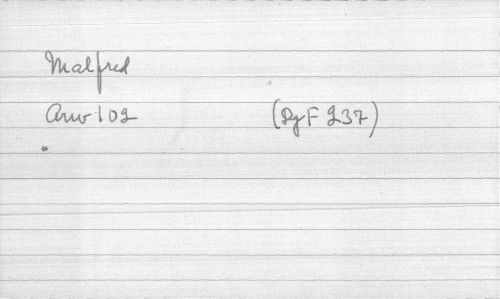 Malfred
Arw 102 (DgF 237)